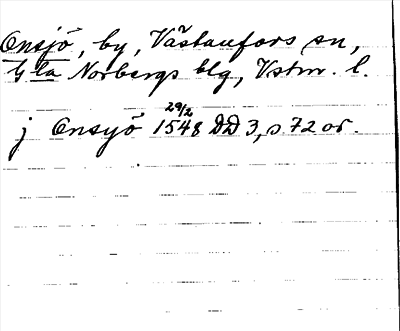 Onsjö, by, Västanfors sn,
Gla Norbergs blg, Vstm. l.
29/2
j Onsyö 1548 DD 3, s. 72 or.